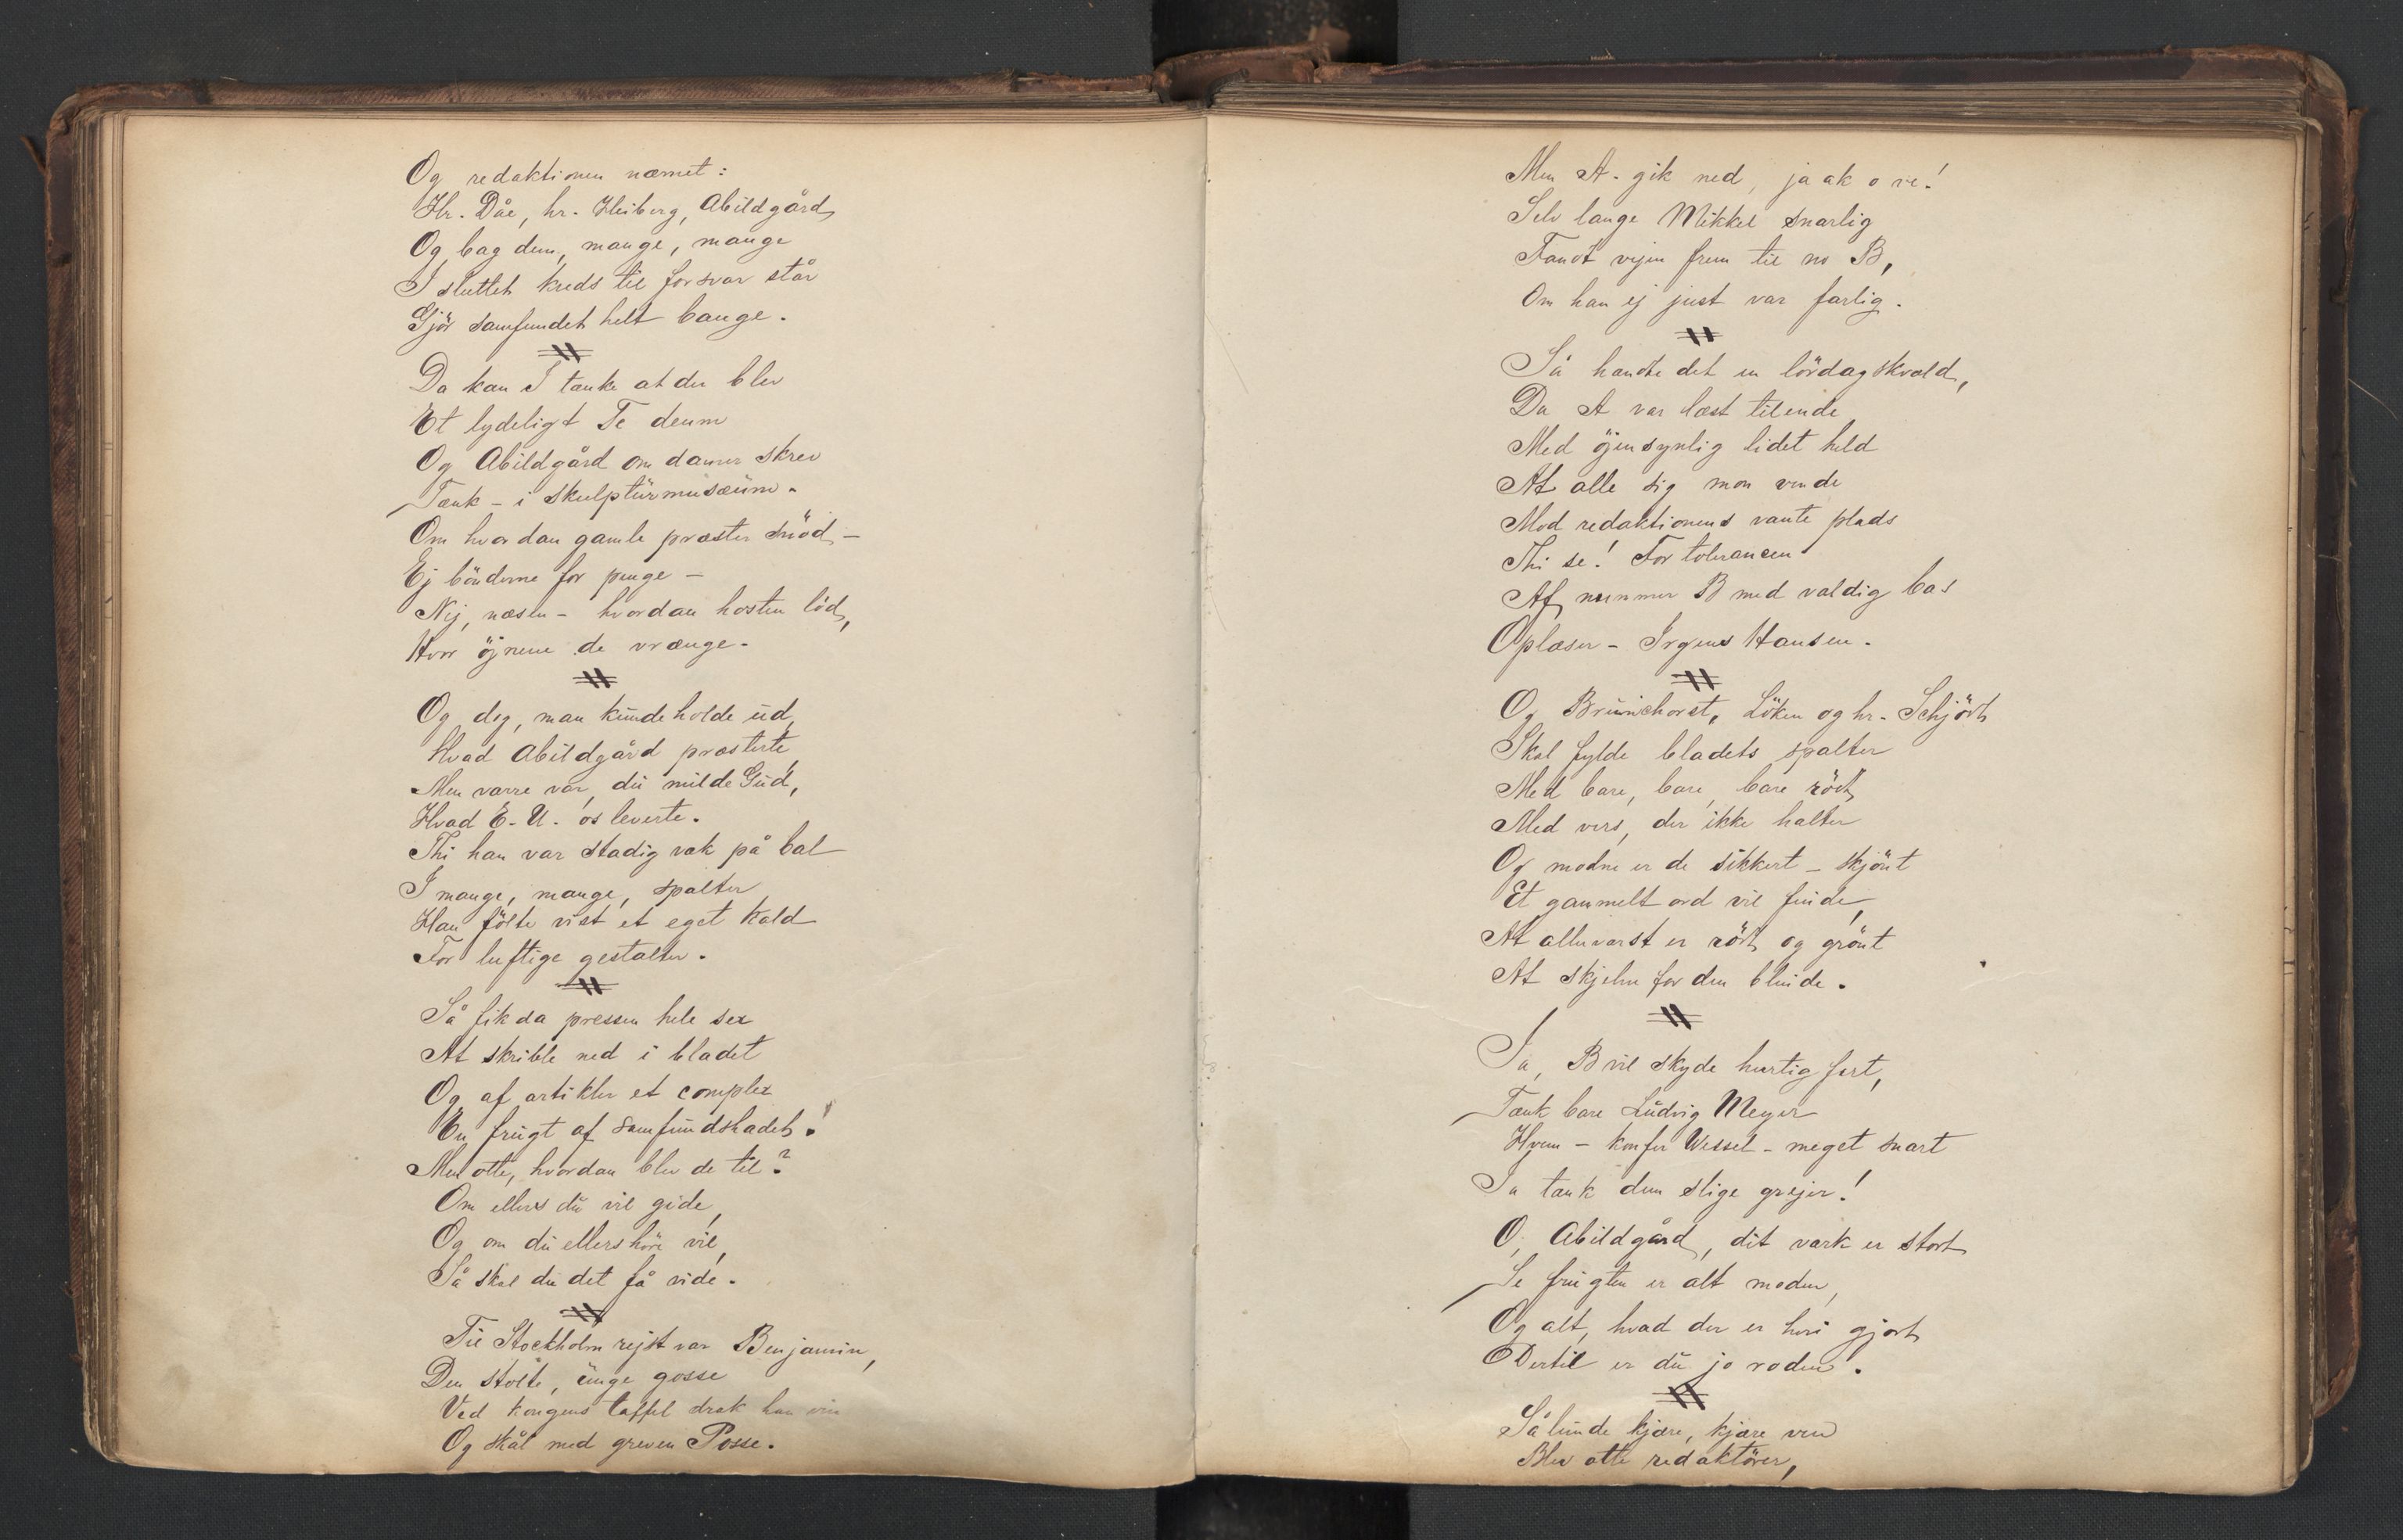 Og redaktionen nævnet:
Hr. Dåe, hr. Heiberg, Abildgård
Og bag dem, mange, mange
I sluttet kreds til forsvar står
Gjör samfundet helt bange.
Da kan I tænke at der blev
Et lydeligt Te deum
Og Abildgård om damer skrev
Tænk - i skulptürmusæüm.
Om hvordan gamle præster snöd -
Ej bönderne for penge -
Nej, næsen - hvordan hosten löd,
Hvor öjnene de vrænge.
Og dog, man künde holde üd,
Hvad Abildgård præsterte,
Men værre var, dü milde Güd,
Hvad E. U. os leverte.
Thi han var stadig væk på bal
I mange, mange, spalter
Han fölte vist et eget kald
For luftige gestalter.
Så fik da pressen hele sex
At skrible ned i bladet
Og af artikler et complex
En frügt af samfündshadet!
Men otte, hvordan blev de til?
Om ellers dü vil gide,
Og om dü ellers höre vil,
Så skal du det få vide.
Til Stockholm rejst var Benjamin,
Den stolte, ünge gosse
Ved kongens taffel drak han vin
Og skål med greven Posse.
Men A. gik ned, ja ak o ve!
Selv lange Mikkel snarlig
Fandt vejen frem til no B,
Om han ej just var farlig.
Så hændte det en lördagskvæld,
Da A var læst tilende
Med öjensynlig lidet held
At alle sig mon vende
Mod redaktionens vante plads
Thi se! For tolerancen
Af nummer B med vældig bas
Oplæser - Irgens Hansen.
Og Brünchorst, Löken og hr. Schjöth
Skal fylde bladets spalter
Med bare, bare, bare rödt,
Med vers, der ikke halter
Og modne er de sikkert - skjönt
Et gammelt ord vil finde,
At alleværst er rödt og grönt
At skjelne for den blinde.
Ja, B vil skyde hurtig fart,
Tænk bare Lüdvig Meyer
Hvem - konfer Wessel - meget snart
Ja tænk dem slige grejer!
O, Abildgård, dit værk er stort
Se frügten er alt moden,
Og alt, hvad der er heri gjort
Dertil er dü jo roden.
Sålünde kjære, kjære ven
Blev otte redaktörer,